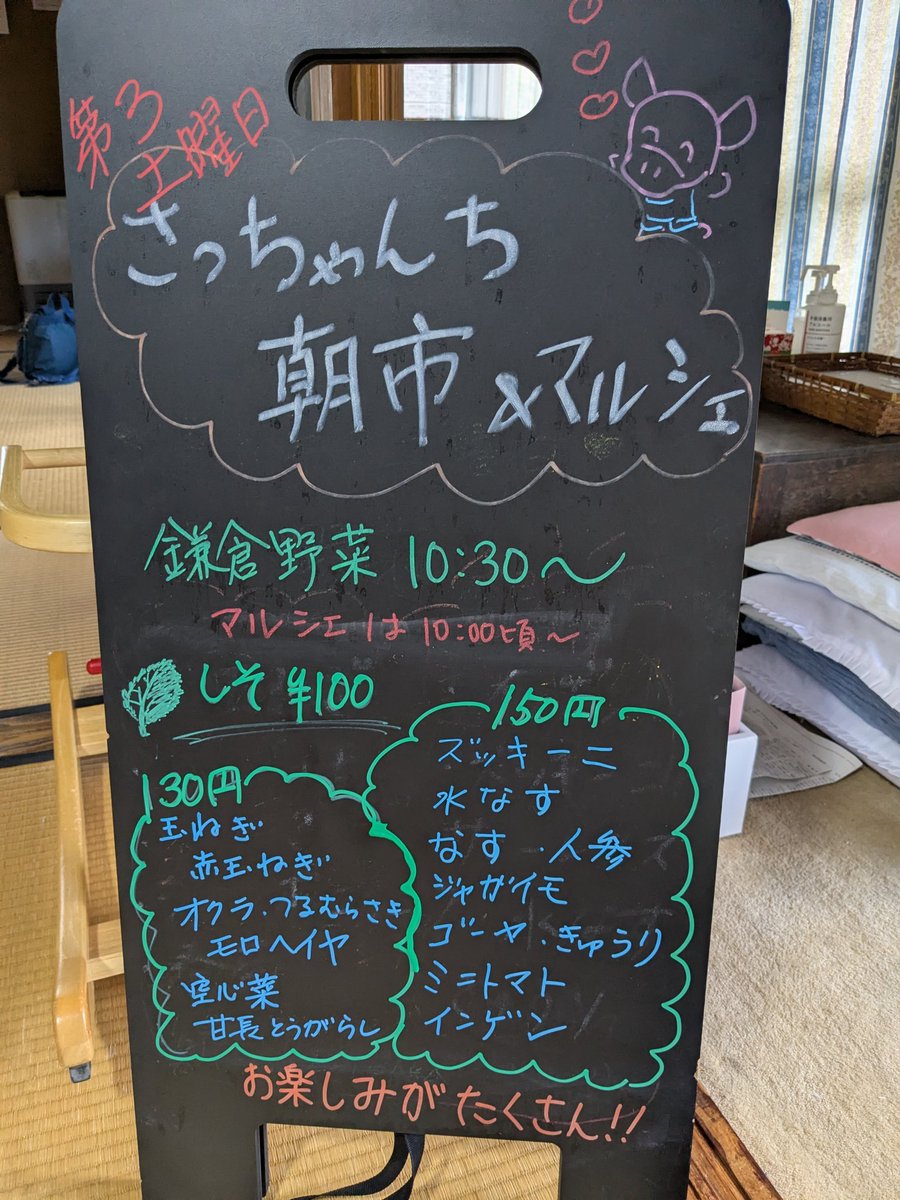 第3
土曜日
さっちゃんち
朝市&マルシェ
鎌倉野菜 10:30〜
マルシェは10:00頃〜
しそ ¥100
130円
玉ねぎ
赤玉ねぎ
オクラ・つるむらさき
モロヘイヤ
空心菜
甘長とうがらし
150円
ズッキーニ
水なす
なす・人参
ジャガイモ
ゴーヤ・きゅうり
ミニトマト
インゲン
お楽しみがたくさん!!